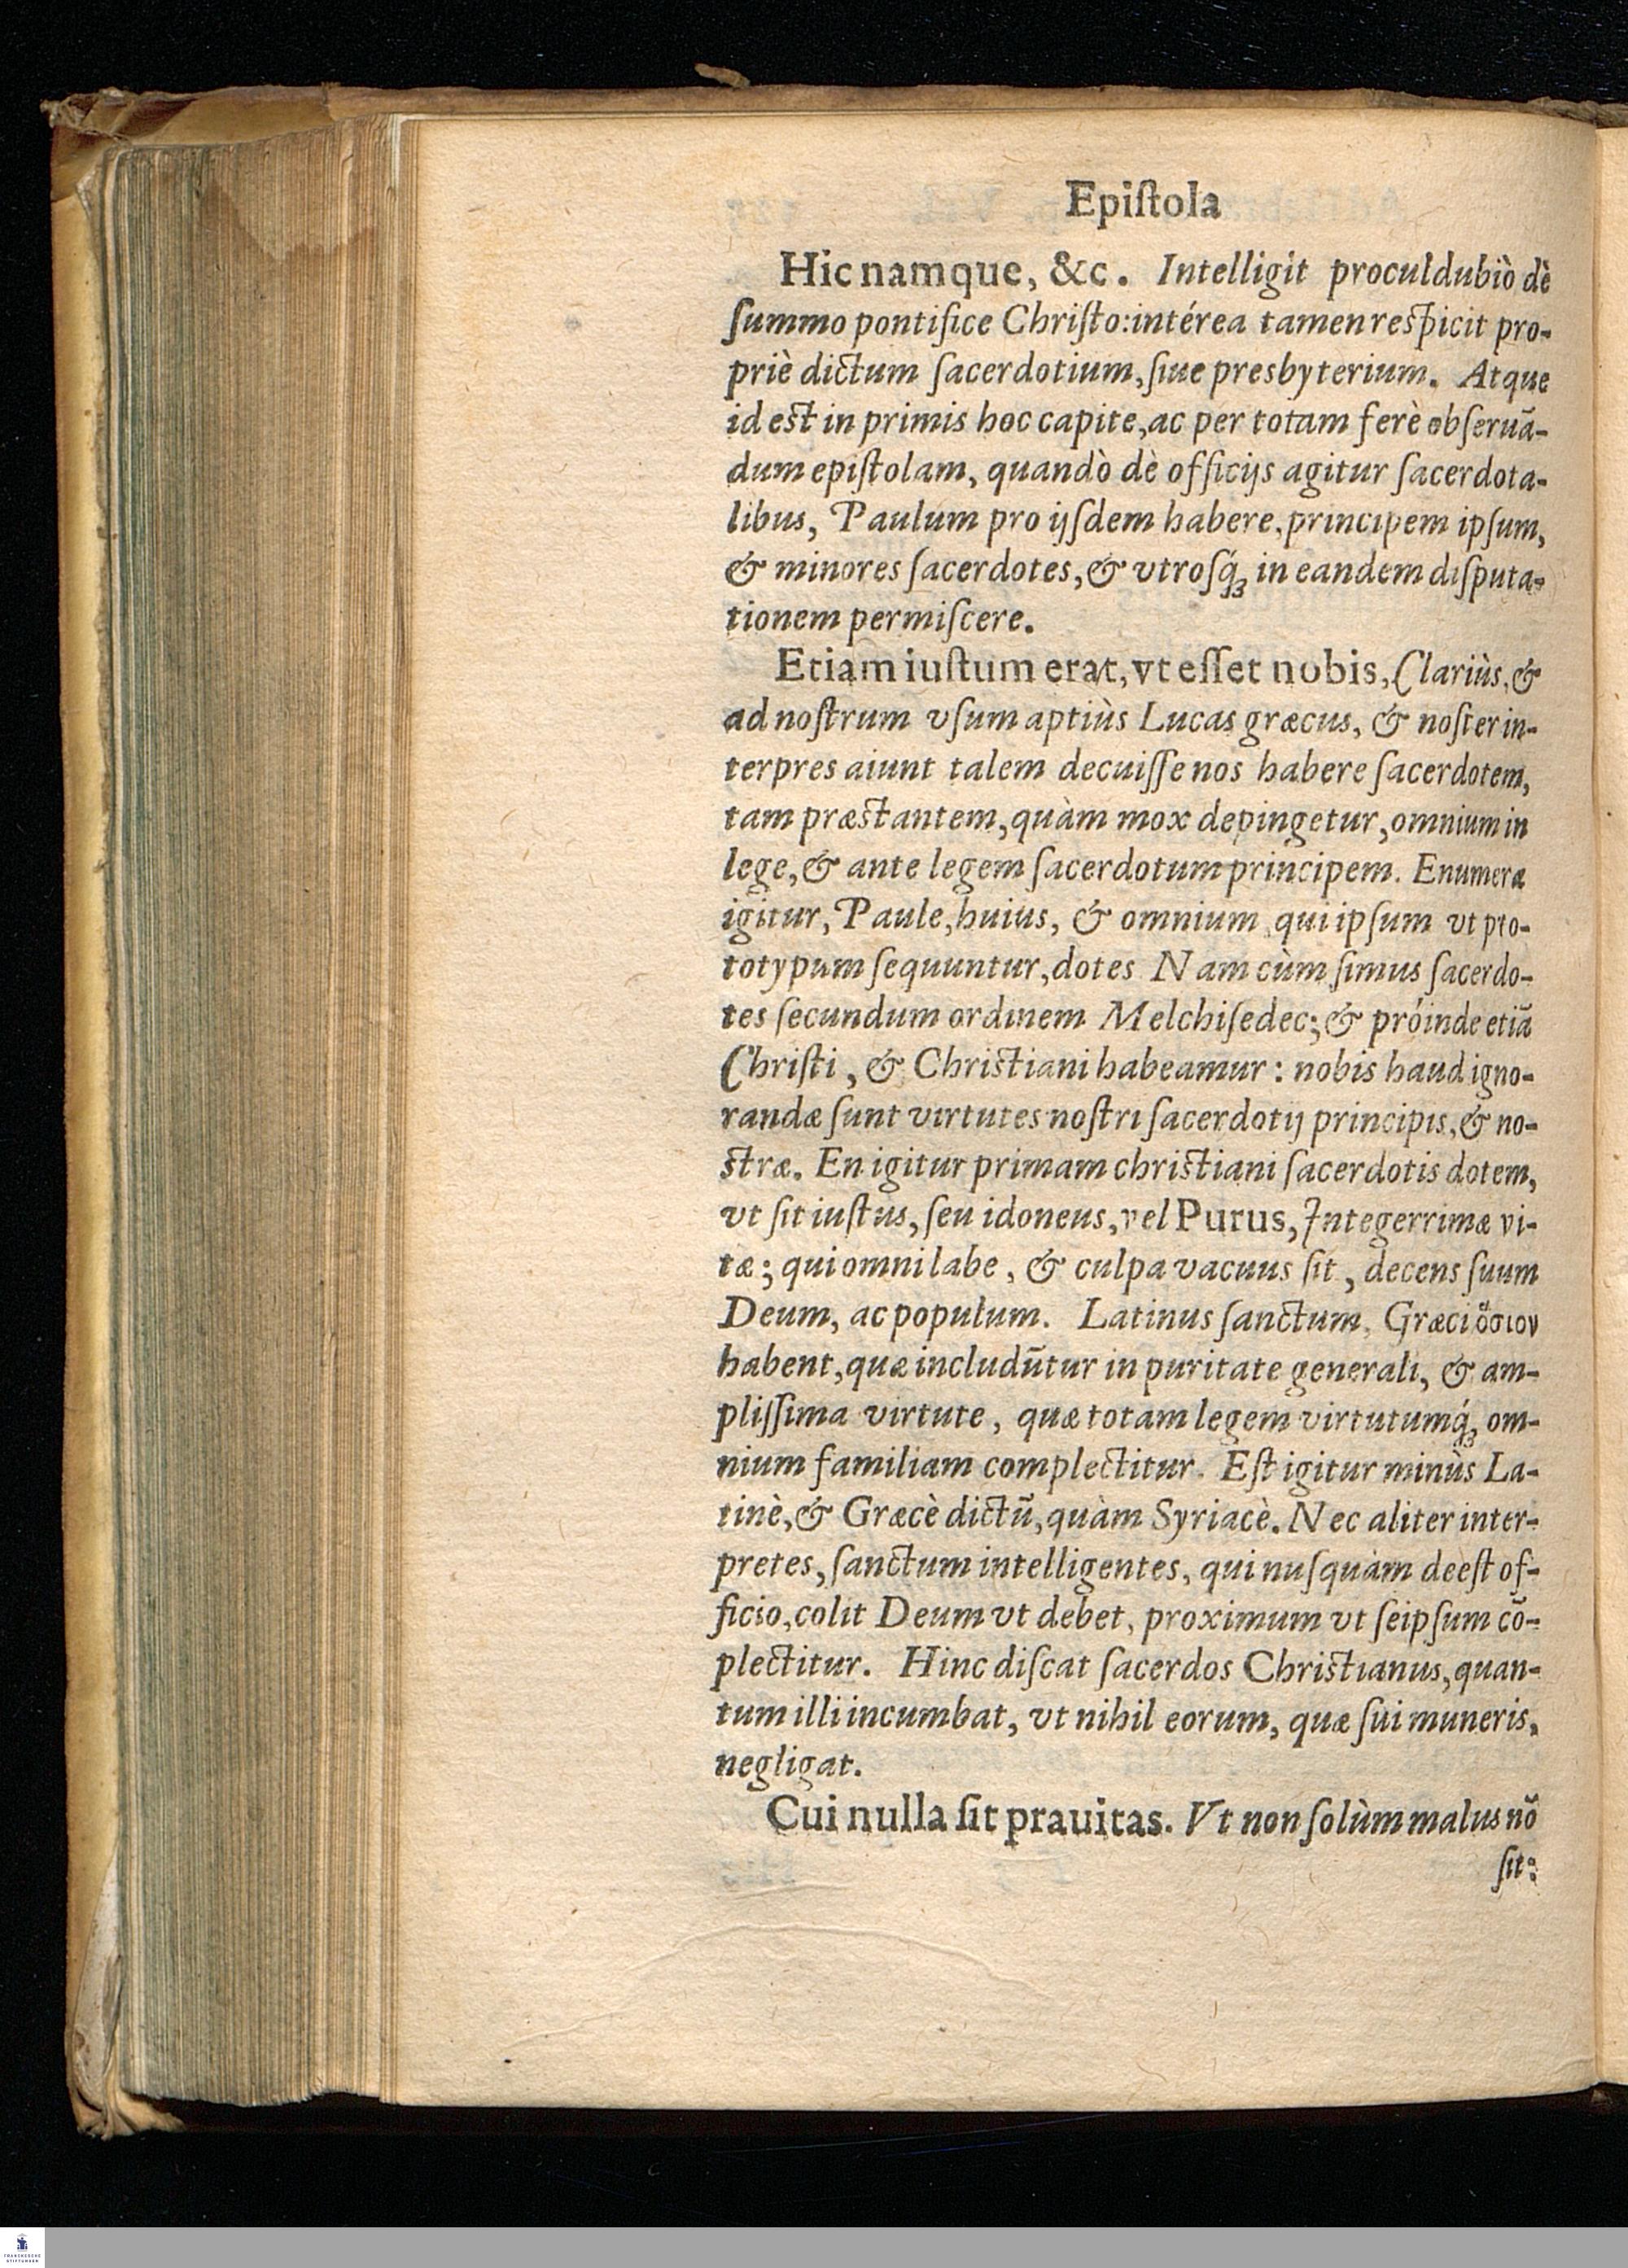 Epiſtola
Hic namque, &c. Intelligit proculdubiò dè
ſummo pontifice Chriſto: intérea tamen reſpicit pro-
priè dictum ſacerdotium, ſiue presbyterium. Atque
id eſt in primis hoc capite, ac per totam ferè obſeruā-
dum epiſtolam, quandò dè officijs agitur ſacerdota-
libus, Paulum pro ijſdem habere, principem ipſum,
& minores ſacerdotes, & vtroſq́; in eandem diſputa-
tionem permiſcere.
Etiam iuſtum erat, vt eſſet nobis, Clariùs, &
ad noſtrum vſum aptiùs Lucas græcus, & noſter in-
terpres aiunt talem decuiſſe nos habere ſacerdotem,
tam præſtantem, quàm mox depingetur, omnium in
lege, & ante legem ſacerdotum principem. Enumera
igitur, Paule, huius, & omnium, qui ipſum vt pro-
totypum ſequuntur, dotes Nam cùm ſimus ſacerdo-
tes ſecundum ordinem Melchiſedec; & próinde etiā
Chriſti, & Chriſtiani habeamur: nobis haud igno-
randæ ſunt virtutes noſtri ſacerdotij principis, & no-
ſtræ. En igitur primam chriſtiani ſacerdotis dotem,
vt ſit iuſtus, ſeu idoneus, vel Purus, Integerrimæ vi-
tæ; qui omni labe, & culpa vacuus ſit, decens ſuum
Deum, ac populum. Latinus ſanctum, Græci ὅσιον
habent, quæ includūtur in puritate generali, & am-
pliſſima virtute, quæ totam legem virtutumq́; om-
nium familiam complectitur. Eſt igitur minùs La-
tinè, & Græcè dictū, quàm Syriacè. Nec aliter inter-
pretes, ſanctum intelligentes, qui nuſquàm deeſt of-
ficio, colit Deum vt debet, proximum vt ſeipſum cō-
plectitur. Hinc diſcat ſacerdos Chriſtianus, quan-
tum illi incumbat, vt nihil eorum, quæ ſui muneris,
negligat.
Cui nulla ſit prauitas. Vt non ſolùm malus nō
ſit: